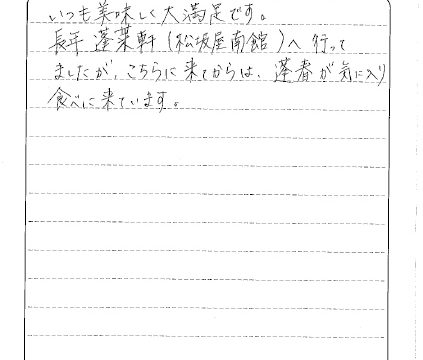 いつも美味しく大満足です。
長年 蓬莱軒(松坂屋南館)へ 行って
ましたが、こちらに来てからは、蓬春が気に入り
食べに来ています。